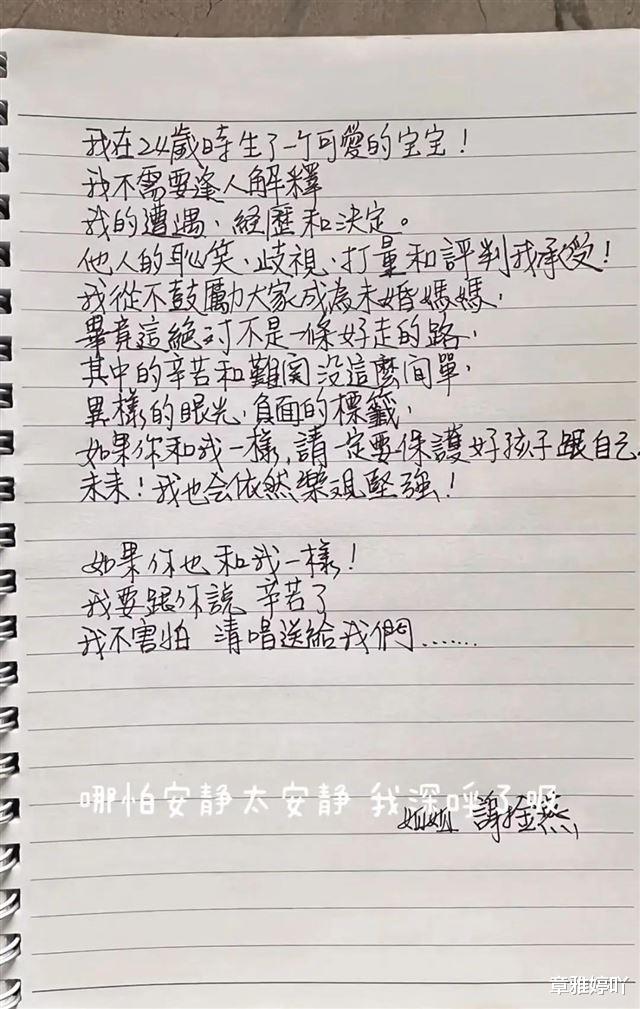 我在24歲時生了一个可愛的宝宝！
我不需要逢人解釋
我的遭遇、経歷和決定。
他人的恥笑、歧視、打量和評判我承受！
我從不鼓勵大家成為未婚媽媽，
畢竟這絕对不是一條好走的路，
其中的辛苦和難関没這麼间單，
異樣的眼光，負面的標籤，
如果你和我一樣，請一定要保護好孩子跟自己。
未来！我也会依然樂观堅強！
如果你也和我一樣！
我要跟你說 辛苦了
我不害怕 清唱送給我們……
哪怕安静太安静 我深呼了吸
姐姐 謝金燕
章雅婷吖